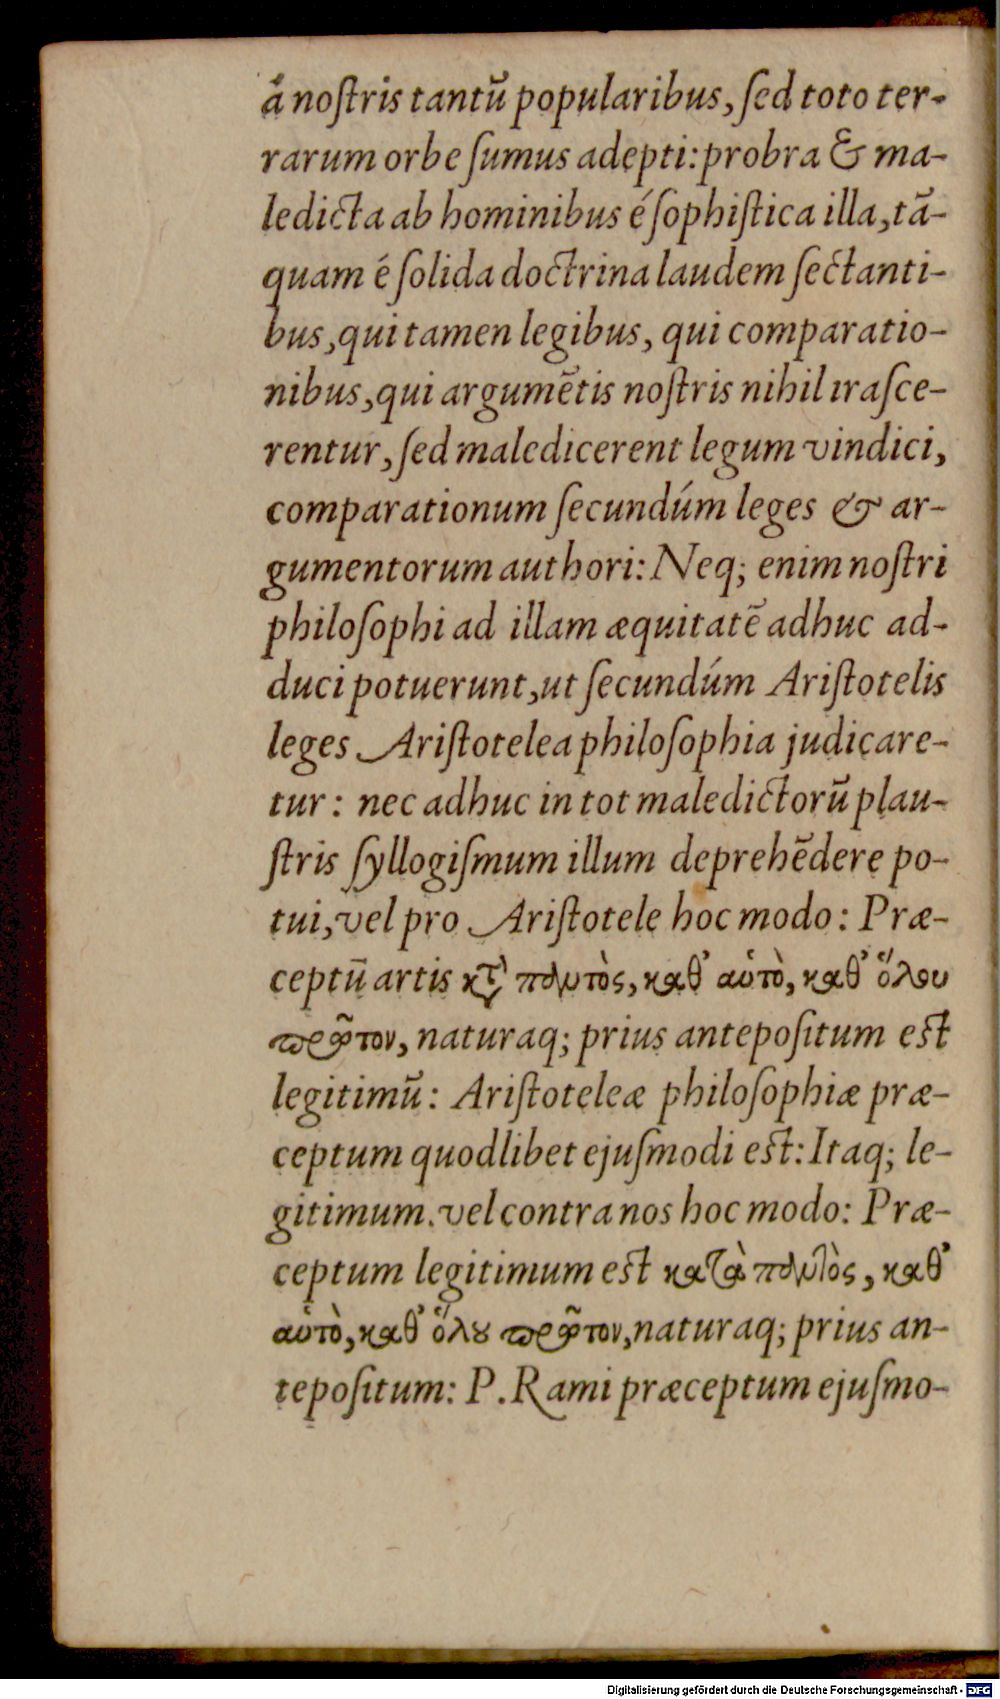 á noſtris tantũ popularibus, ſed toto ter-
rarum orbe ſumus adepti: probra & ma-
ledicta ab hominibus é ſophiſtica illa, tã-
quam é ſolida doctrina laudem ſectanti-
bus, qui tamen legibus, qui comparatio-
nibus, qui argumẽtis noſtris nihil iraſce-
rentur, ſed maledicerent legum vindici,
comparationum ſecundúm leges & ar-
gumentorum authori: Neq; enim noſtri
philoſophi ad illam æquitatẽ adhuc ad-
duci potuerunt, ut ſecundúm Ariſtotelis
leges Ariſtotelea philoſophia judicare-
tur: nec adhuc in tot maledictorũ plau-
ſtris ſyllogiſmum illum deprehẽdere po-
tui, vel pro Ariſtotele hoc modo: Præ-
ceptũ artis κτ̀ παντὸς, καθ’ αὑτὸ, καθ’ ὅλου
πρῶτον, naturaq; prius antepoſitum eſt
legitimũ: Ariſtoteleæ philoſophiæ præ-
ceptum quodlibet ejuſmodi eſt: Itaq; le-
gitimum. vel contra nos hoc modo: Præ-
ceptum legitimum eſt κατὰ παντὸς, καθ’
αὑτὸ, καθ’ ὅλȣ πρῶτον, naturaq; prius an-
tepoſitum: P. Rami præceptum ejuſmo-
Digitalisierung gefördert durch die Deutsche Forschungsgemeinschaft - DFG